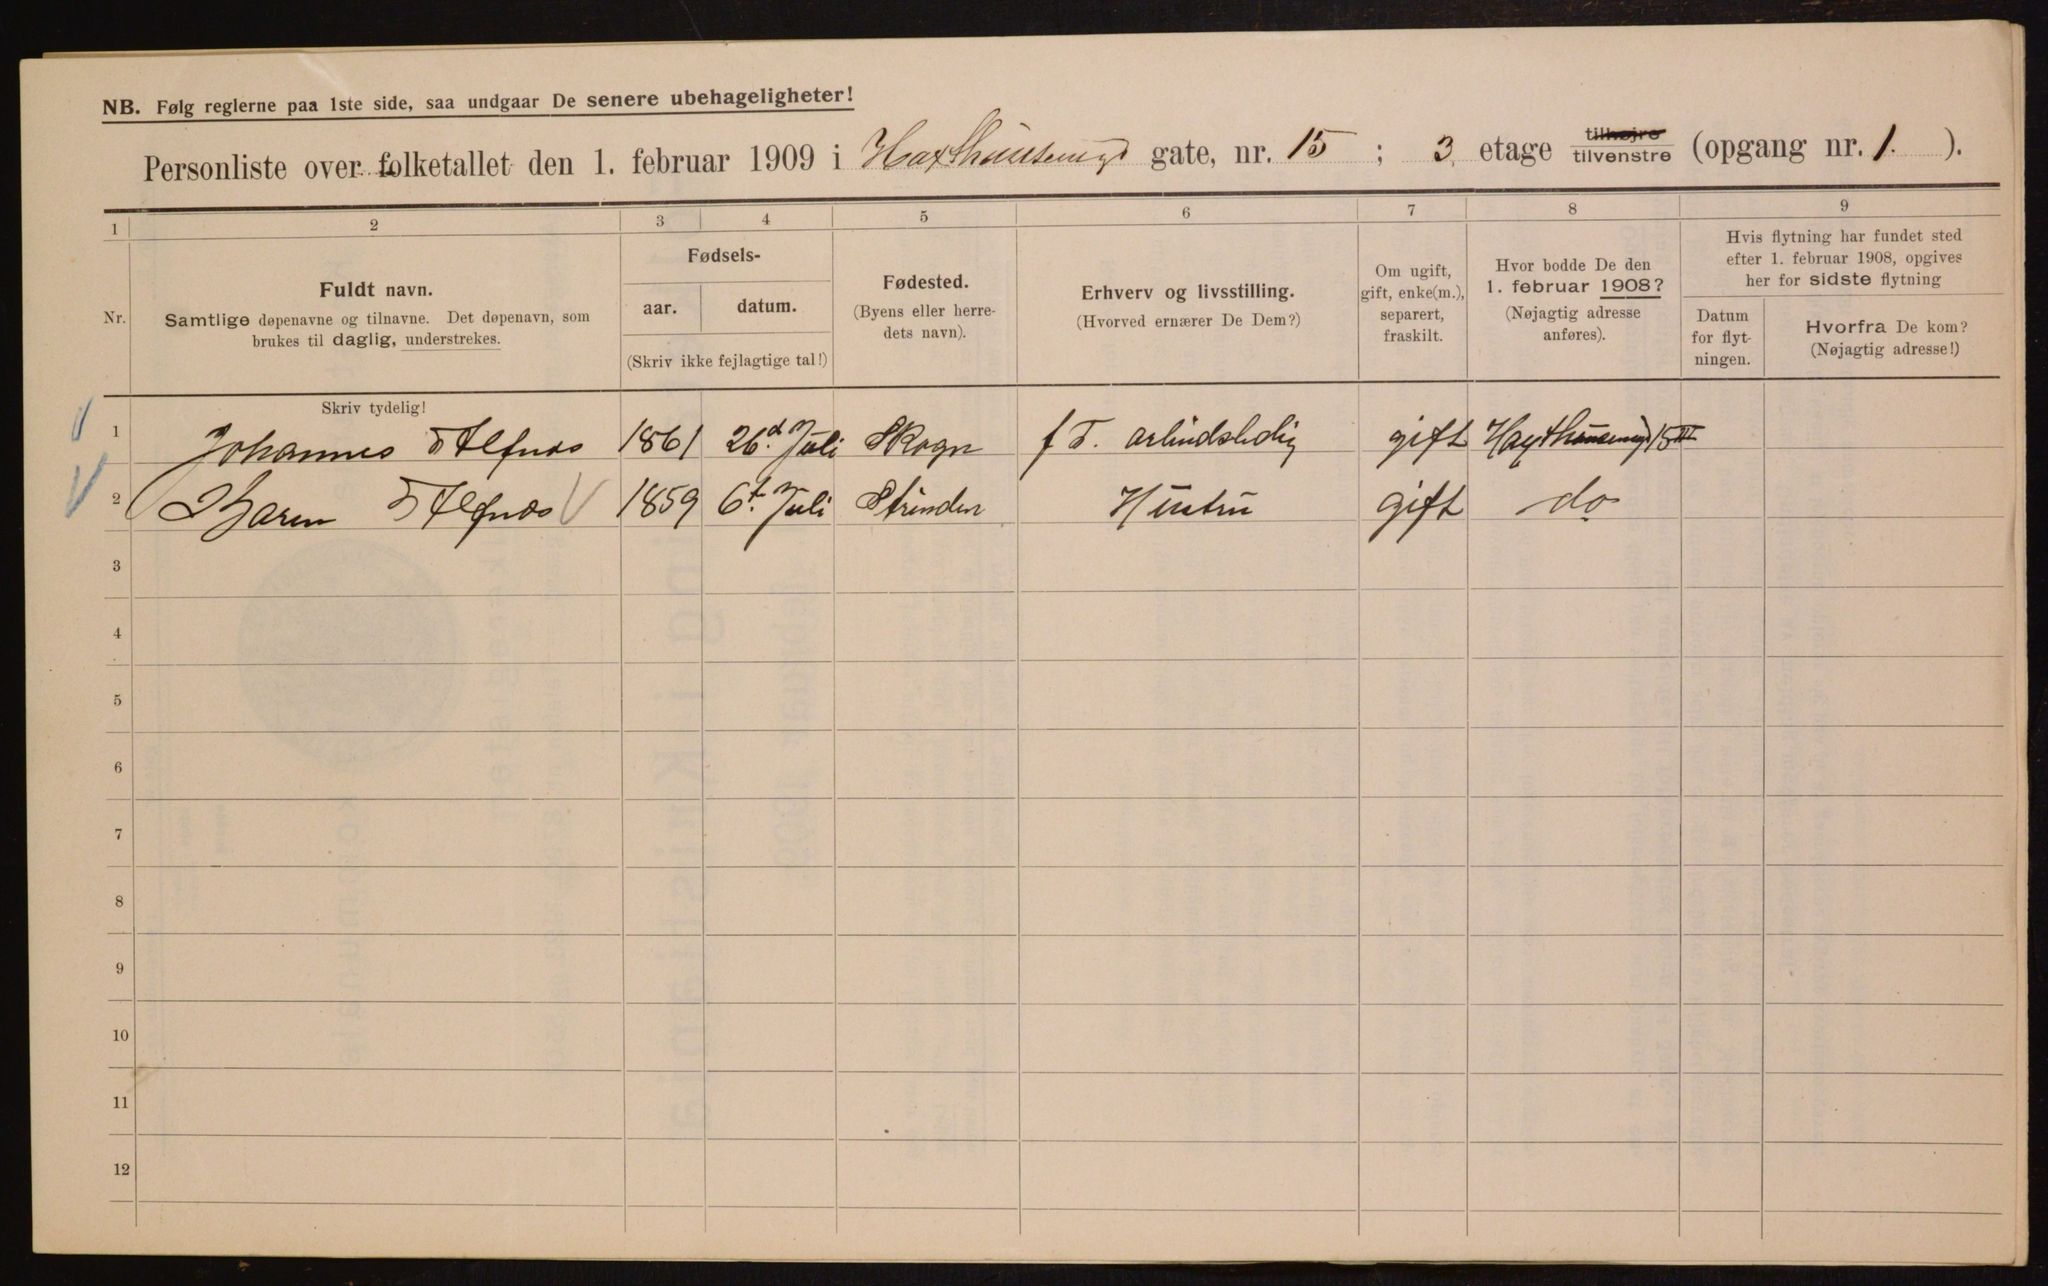 NB. Følg reglerne paa 1ste side, saa undgaar De senere ubehageligheter!
Personliste over folketallet den 1. februar 1909 i Haxthausensgt gate, nr. 15 ; 3. etage tilhøjre tilvenstre (opgang nr. 1. ).
1 2 3 4 5 6 7 8 9
Nr.
Fuldt navn.
Samtlige døpenavne og tilnavne. Det døpenavn, som
brukes til daglig, understrekes.
Skriv tydelig!
Fødsels-
aar. datum.
(Skriv ikke fejlagtige tal!)
Fødested.
(Byens eller herre-
dets navn).
Erhverv og livsstilling.
(Hvorved ernærer De Dem?)
Om ugift,
gift, enke(m.),
separert,
fraskilt.
Hvor bodde De den
1. februar 1908?
(Nøjagtig adresse
anføres).
Hvis flytning har fundet sted
efter 1. februar 1908, opgives
her for sidste flytning
Datum
for flyt-
ningen.
Hvorfra De kom?
(Nøjagtig adresse!)
1 Johannes Alfnes 1861 26.d Juli Skogn f T. arbeidsledig gift Haxthausensgt 15 III
2 Karen Alfnes 1859 6t. Juli Strinden Hustru gift do
3
4
5
6
7
8
9
10
11
12